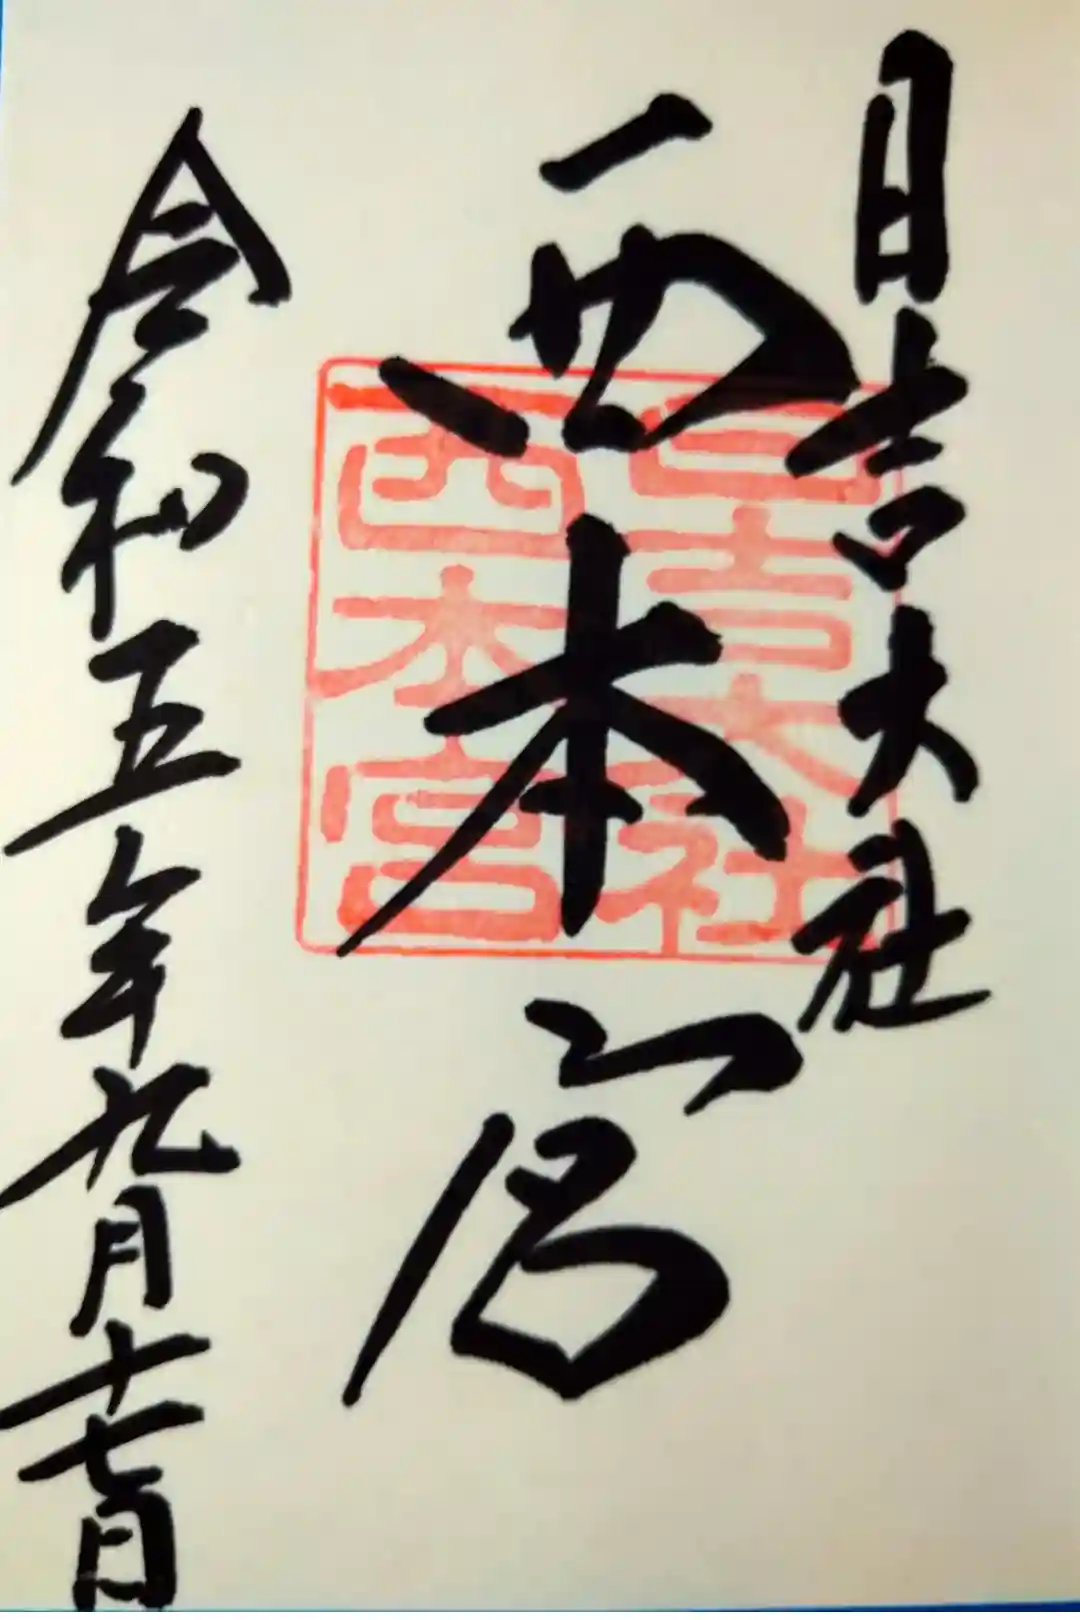 日吉大社
西本宮
日吉大社
西本宮
令和五年九月十七日